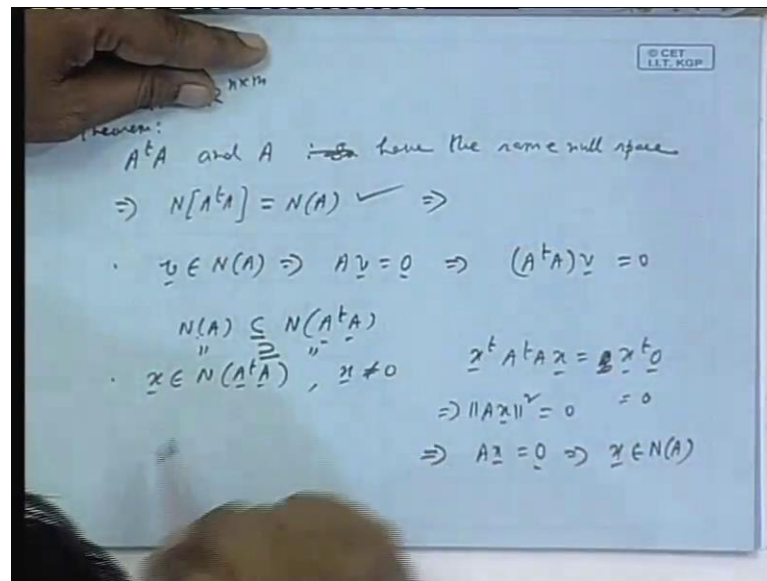 © CET
I.I.T. KGP
n×m
Theorem:
AᵗA and A have the same null space
⇒ N[AᵗA] = N(A) ✓ ⇒
· v ∈ N(A) ⇒ A v = 0 ⇒ (AᵗA) v = 0
N(A) ⊆ N(AᵗA)
" ⊇ "
· x ∈ N(AᵗA) , x ≠ 0
xᵗ Aᵗ A x = xᵗ 0
⇒ ||Ax||² = 0 = 0
⇒ Ax = 0 ⇒ x ∈ N(A)